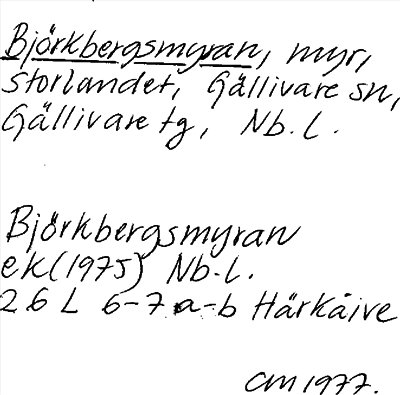 Björkbergsmyran, myr,
storlandet, Gällivare sn,
Gällivare tg, Nb. L.
Björkbergsmyran
ek (1975) Nb. L.
26 L 6-7 a-b Härkåive
CM 1977.